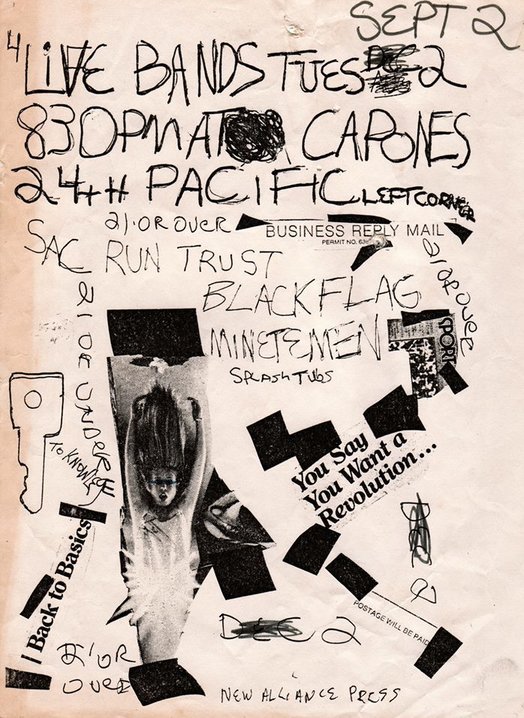 SEPT 2
4
LIVE BANDS TUES 2
830PM AT CAPONES
24TH PACIFIC LEFT CORNER
21·OR OVER
BUSINESS REPLY MAIL
PERMIT NO. 63
SAC RUN TRUST
BLACK FLAG
21 OR OVER
MINETEMEN
SPORT
SPLASH TUBS
21 OR UNDER
TO KNOW
You Say
You Want a
Revolution...
Back to Basics
2
POSTAGE WILL BE PAID
DEC 2
21 OR
OVER
NEW ALLIANCE PRESS